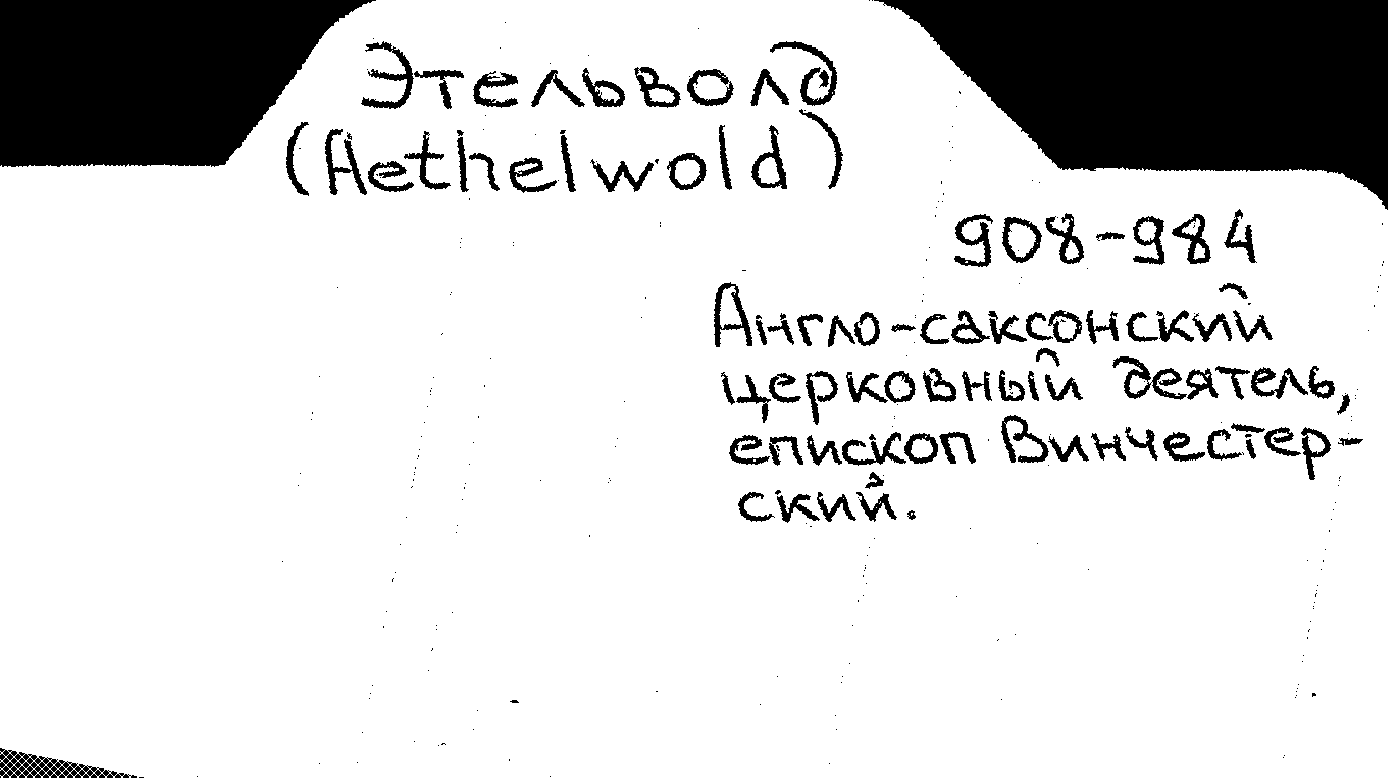 Этельволд
(Aethelwold)
908-984
Англо-саксонский
церковный деятель,
епископ Винчестер-
ский.